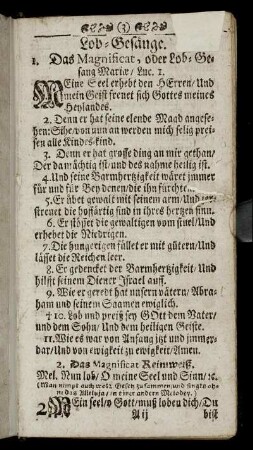 ( 3 )
Lob=Gesänge.
1. Das Magnificat, oder Lob=Ge=
sang Mariæ, Luc. 1.
MEine Seel erhebt den HErren/Und
mein Geist freuet sich Gottes meines
Heylandes.
2. Denn er hat seine elende Magd angese=
hen: Sihe/von nun an werden mich selig prei=
sen alle Kindes=kind.
3. Denn er hat grosse ding an mir gethan/
Der da mächtig ist/und des nahme heilig ist.
4. Und seine Barmhertzigkeit wäret immer
für und für Bey denen/die ihn fürchten.
5. Er übet gewalt mit seinem arm/Und zer=
streuet die hoffärtig sind in ihres hertzen sinn.
6. Er stösset die gewaltigen vom stuel/Und
erhebet die Niedrigen.
7. Die hungerigen füllet er mit gütern/Und
lässet die Reichen leer.
8. Er gedencket der Barmhertzigkeit/Und
hilfft seinem Diener Israel auff.
9. Wie er geredt hat unsern vätern/Abra=
ham und seinem Saamen ewiglich.
† 10. Lob und preiß sey GOtt dem Vater/
und dem Sohn/Und dem heiligen Geiste.
11. Wie es war von Anfang itzt und immer=
dar/Und von ewigkeit zu ewigkeit/Amen.
2. Das Magnificat Reimweiß.
Mel. Nun lob/O meine Seel und Sinn/ꝛc.
(Man nimpt auch wol 2. Gesetz zusammen/und singts oh=
ne das Alleluja/in einer andern Melodey.)
MEin seel/o Gott/muß loben dich/Du
A ij bist